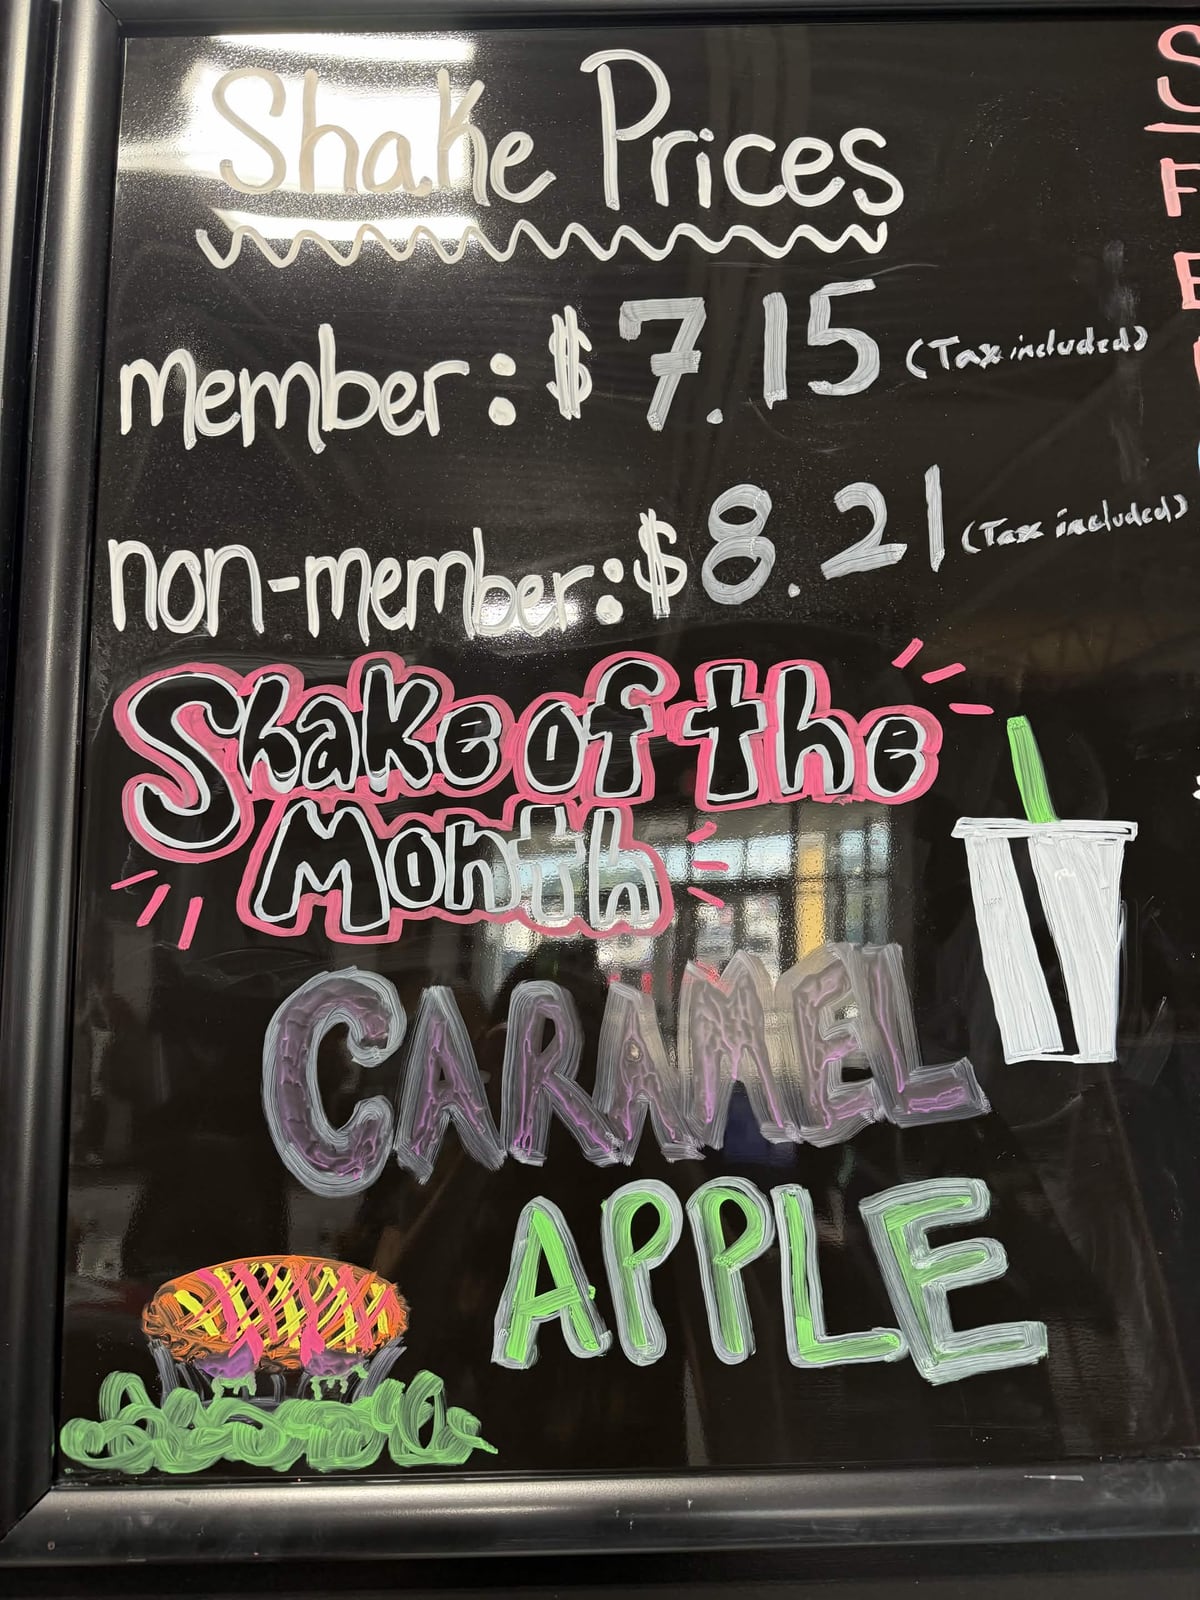 Shake Prices
member: $7.15 (Tax included)
non-member: $8.21 (Tax included)
Shake of the
Month
CARAMEL
APPLE
S
F
E